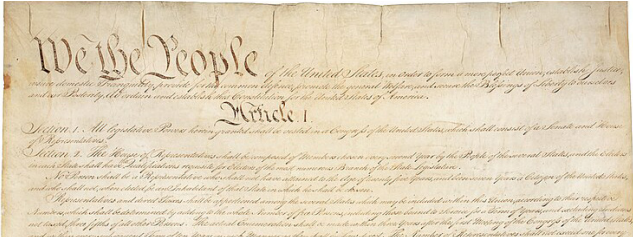 We the People of the United States, in Order to form a more perfect Union, establish Justice,
insure domestic Tranquility, provide for the common defence, promote the general Welfare, and secure the Blessings of Liberty to ourselves
and our Posterity, do ordain and establish this Constitution for the United States of America.
Article. I.
Section. 1. All legislative Powers herein granted shall be vested in a Congress of the United States, which shall consist of a Senate and House
of Representatives.
Section. 2. The House of Representatives shall be composed of Members chosen every second Year by the People of the several States, and the Electors
in each State shall have Qualifications requisite for Electors of the most numerous Branch of the State Legislature.
No Person shall be a Representative who shall not have attained to the Age of twenty five Years, and been seven Years a Citizen of the United States,
and who shall not, when elected, be an Inhabitant of that State in which he shall be chosen.
Representatives and direct Taxes shall be apportioned among the several States which may be included within this Union, according to their respective
Numbers, which shall be determined by adding to the whole Number of free Persons, including those bound to Service for a Term of Years, and excluding Indians
not taxed, three fifths of all other Persons. The actual Enumeration shall be made within three Years after the first Meeting of the Congress of the United States,